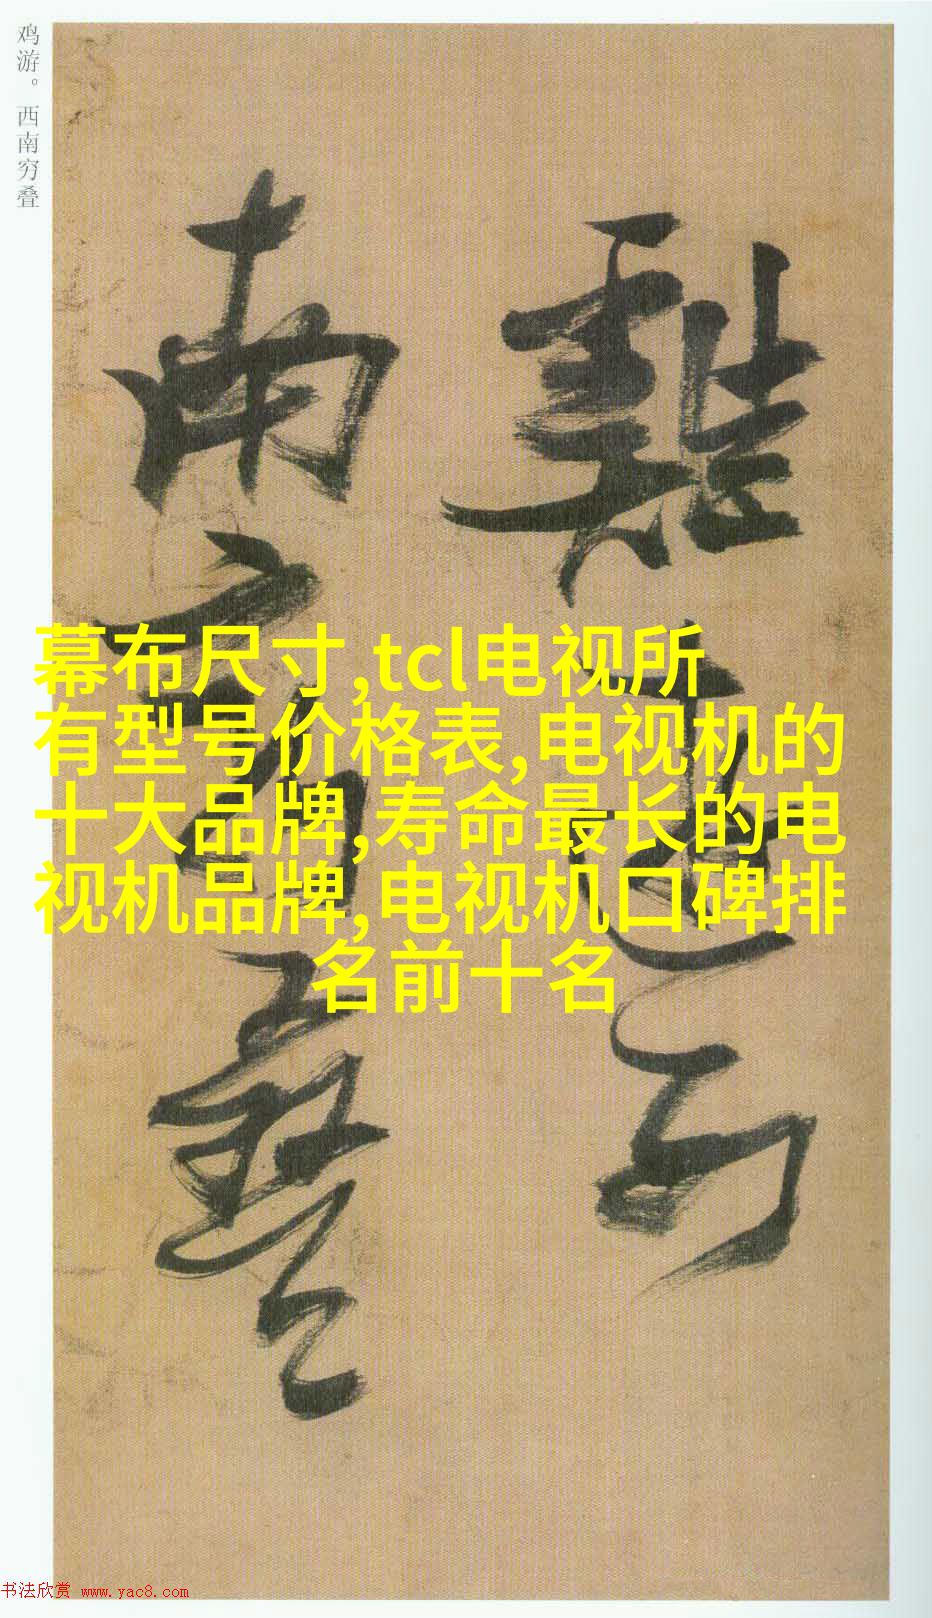 鸡游。西南穷叠
雞遊西
南穷疊
幕布尺寸,tcl电视所
有型号价格表,电视机的
十大品牌,寿命最长的电
视机品牌,电视机口碑排
名前十名
书法欣赏 www.yac8.com